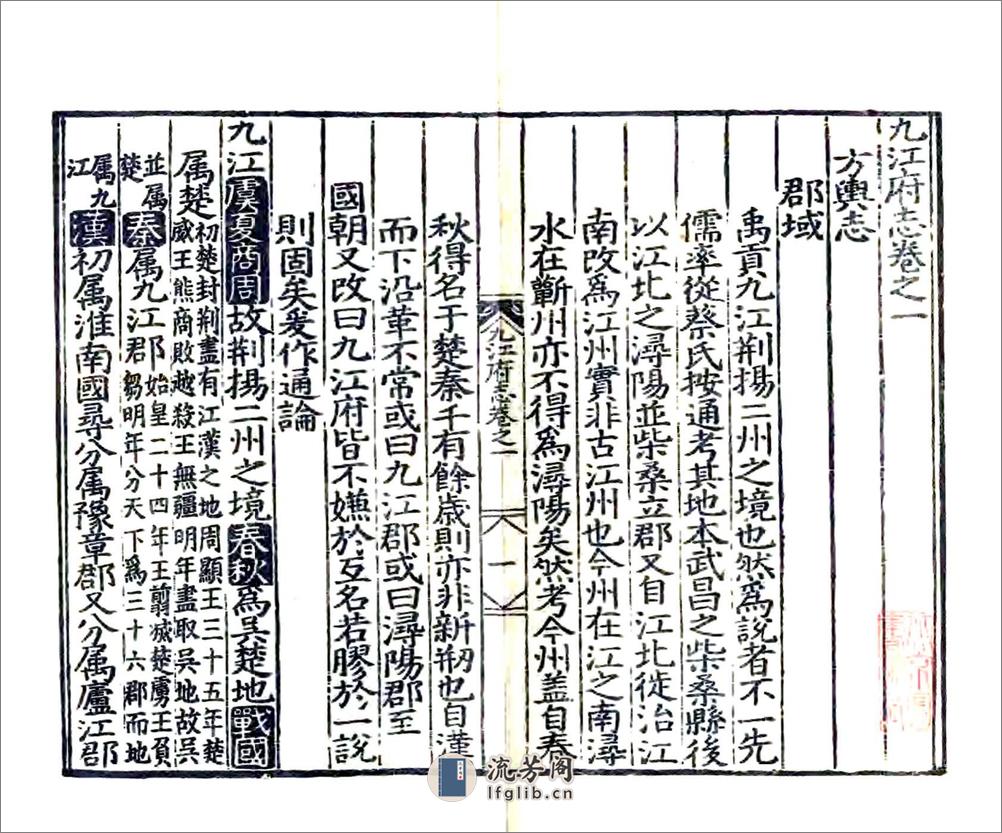 九江府志卷之一
方輿志
郡域
禹貢九江荆揚二州之境也然爲說者不一先
儒率從蔡氏按通考其地本武昌之柴桑縣後
以江北之潯陽並柴桑立郡又自江北徙治江
南改爲江州實非古江州也今州在江之南潯
水在蘄州亦不得爲潯陽矣然考今州盖自春
九江府志卷之一
一
秋得名于楚秦千有餘歲則亦非新刱也自漢
而下沿革不常或曰九江郡或曰潯陽郡至
國朝又改曰九江府皆不嫌於互名若膠於一說
則固矣爰作通論
九江虞夏商周故荆揚二州之境春秋爲吳楚地戰國
属楚初楚封荆盡有江漢之地周顯王三十五年楚
威王熊商敗越殺王無疆明年盡取吳地故吳
並属楚秦属九江郡始皇二十四年王翦滅楚虜王負
芻明年分天下爲三十六郡而地
属九江漢初属淮南國尋分属豫章郡又分属廬江郡
流芳阁
lfglib.cn